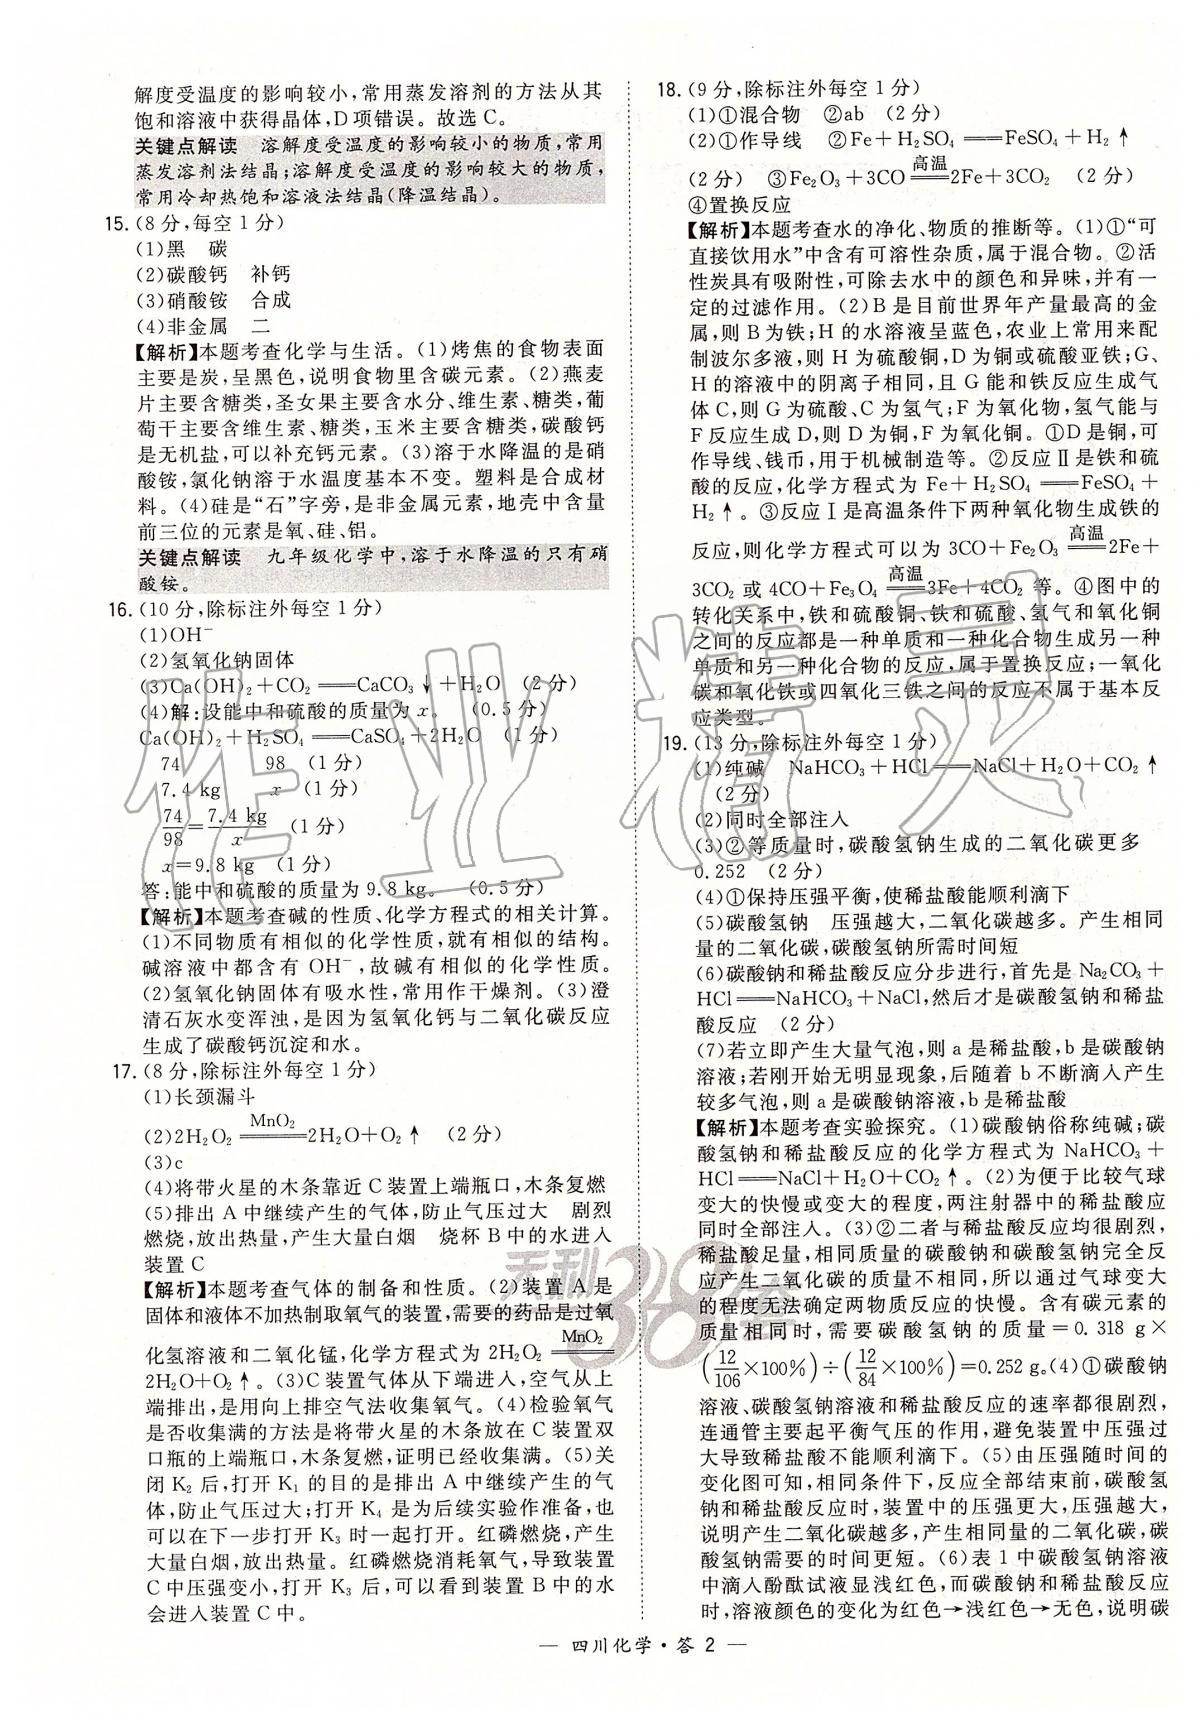 解度受温度的影响较小,常用蒸发溶剂的方法从其
饱和溶液中获得晶体,D项错误。故选C。
关键点解读 溶解度受温度的影响较小的物质,常用
蒸发溶剂法结晶;溶解度受温度的影响较大的物质,
常用冷却热饱和溶液法结晶(降温结晶)。
15.(8分,每空1分)
(1)黑 碳
(2)碳酸钙 补钙
(3)硝酸铵 合成
(4)非金属 二
【解析】本题考查化学与生活。(1)烤焦的食物表面
主要是炭,呈黑色,说明食物里含碳元素。(2)燕麦
片主要含糖类,圣女果主要含水分、维生素、糖类,葡
萄干主要含维生素、糖类,玉米主要含糖类,碳酸钙
是无机盐,可以补充钙元素。(3)溶于水降温的是硝
酸铵,氯化钠溶于水温度基本不变。塑料是合成材
料。(4)硅是“石”字旁,是非金属元素,地壳中含量
前三位的元素是氧、硅、铝。
关键点解读 九年级化学中,溶于水降温的只有硝
酸铵。
16.(10分,除标注外每空1分)
(1)OH⁻
(2)氢氧化钠固体
(3)Ca(OH)₂+CO₂══CaCO₃↓+H₂O (2分)
(4)解:设能中和硫酸的质量为x。 (0.5分)
Ca(OH)₂+H₂SO₄══CaSO₄+2H₂O (1分)
74 98 (1分)
7.4 kg x (1分)
74/98=7.4 kg/x (1分)
x=9.8 kg (1分)
答:能中和硫酸的质量为9.8 kg。 (0.5分)
【解析】本题考查碱的性质、化学方程式的相关计算。
(1)不同物质有相似的化学性质,就有相似的结构。
碱溶液中都含有OH⁻,故碱有相似的化学性质。
(2)氢氧化钠固体有吸水性,常用作干燥剂。(3)澄
清石灰水变浑浊,是因为氢氧化钙与二氧化碳反应
生成了碳酸钙沉淀和水。
17.(8分,除标注外每空1分)
(1)长颈漏斗
(2)2H₂O₂ ══MnO₂══ 2H₂O+O₂↑ (2分)
(3)c
(4)将带火星的木条靠近C装置上端瓶口,木条复燃
(5)排出A中继续产生的气体,防止气压过大 剧烈
燃烧,放出热量,产生大量白烟 烧杯B中的水进入
装置C
【解析】本题考查气体的制备和性质。(2)装置A是
固体和液体不加热制取氧气的装置,需要的药品是过氧
化氢溶液和二氧化锰,化学方程式为2H₂O₂ ══MnO₂══
2H₂O+O₂↑。(3)C装置气体从下端进入,空气从上
端排出,是用向上排空气法收集氧气。(4)检验氧气
是否收集满的方法是将带火星的木条放在C装置双
口瓶的上端瓶口,木条复燃,证明已经收集满。(5)关
闭K₂后,打开K₁的目的是排出A中继续产生的气
体,防止气压过大;打开K₄是为后续实验作准备,也
可以在下一步打开K₃时一起打开。红磷燃烧,产生
大量白烟,放出热量。红磷燃烧消耗氧气,导致装置
C中压强变小,打开K₃后,可以看到装置B中的水
会进入装置C中。
18.(9分,除标注外每空1分)
(1)①混合物 ②ab (2分)
(2)①作导线 ②Fe+H₂SO₄══FeSO₄+H₂↑
(2分) ③Fe₂O₃+3CO ══高温══ 2Fe+3CO₂ (2分)
④置换反应
【解析】本题考查水的净化、物质的推断等。(1)①“可
直接饮用水”中含有可溶性杂质,属于混合物。②活
性炭具有吸附性,可除去水中的颜色和异味,并有一
定的过滤作用。(2)B是目前世界年产量最高的金
属,则B为铁;H的水溶液呈蓝色,农业上常用来配
制波尔多液,则H为硫酸铜,D为铜或硫酸亚铁;G、
H的溶液中的阴离子相同,且G能和铁反应生成气
体C,则G为硫酸、C为氢气;F为氧化物,氢气能与
F反应生成D,则D为铜,F为氧化铜。①D是铜,可
作导线、钱币,用于机械制造等。②反应Ⅱ是铁和硫
酸的反应,化学方程式为Fe+H₂SO₄══FeSO₄+
H₂↑。③反应Ⅰ是高温条件下两种氧化物生成铁的
反应,则化学方程式可以为3CO+Fe₂O₃ ══高温══ 2Fe+
3CO₂或4CO+Fe₃O₄ ══高温══ 3Fe+4CO₂等。④图中的
转化关系中,铁和硫酸铜、铁和硫酸、氢气和氧化铜
之间的反应都是一种单质和一种化合物生成另一种
单质和另一种化合物的反应,属于置换反应;一氧化
碳和氧化铁或四氧化三铁之间的反应不属于基本反
应类型。
19.(13分,除标注外每空1分)
(1)纯碱 NaHCO₃+HCl══NaCl+H₂O+CO₂↑
(2分)
(2)同时全部注入
(3)②等质量时,碳酸氢钠生成的二氧化碳更多
0.252 (2分)
(4)①保持压强平衡,使稀盐酸能顺利滴下
(5)碳酸氢钠 压强越大,二氧化碳越多。产生相同
量的二氧化碳,碳酸氢钠所需时间短
(6)碳酸钠和稀盐酸反应分步进行,首先是Na₂CO₃+
HCl══NaHCO₃+NaCl,然后才是碳酸氢钠和稀盐
酸反应 (2分)
(7)若立即产生大量气泡,则a是稀盐酸,b是碳酸钠
溶液;若刚开始无明显现象,后随着b不断滴入产生
较多气泡,则a是碳酸钠溶液,b是稀盐酸
【解析】本题考查实验探究。(1)碳酸钠俗称纯碱;碳
酸氢钠和稀盐酸反应的化学方程式为NaHCO₃+
HCl══NaCl+H₂O+CO₂↑。(2)为便于比较气球
变大的快慢或变大的程度,两注射器中的稀盐酸应
同时全部注入。(3)②二者与稀盐酸反应均很剧烈,
稀盐酸足量,相同质量的碳酸钠和碳酸氢钠完全反
应产生二氧化碳的质量不相同,所以通过气球变大
的程度无法确定两物质反应的快慢。含有碳元素的
质量相同时,需要碳酸氢钠的质量=0.318 g×
(12/106×100%)÷(12/84×100%)=0.252 g。(4)①碳酸钠
溶液、碳酸氢钠溶液和稀盐酸反应的速率都很剧烈,
连通管主要起平衡气压的作用,避免装置中压强过
大导致稀盐酸不能顺利滴下。(5)由压强随时间的
变化图可知,相同条件下,反应全部结束前,碳酸氢
钠和稀盐酸反应时,装置中的压强更大,压强越大,
说明产生二氧化碳越多,产生相同量的二氧化碳,碳
酸氢钠需要的时间更短。(6)表1中碳酸氢钠溶液
中滴入酚酞试液显浅红色,而碳酸钠和盐酸反应
时,溶液颜色的变化为红色→浅红色→无色,说明碳
— 四川化学·答 2 —
作业精灵
天利38套